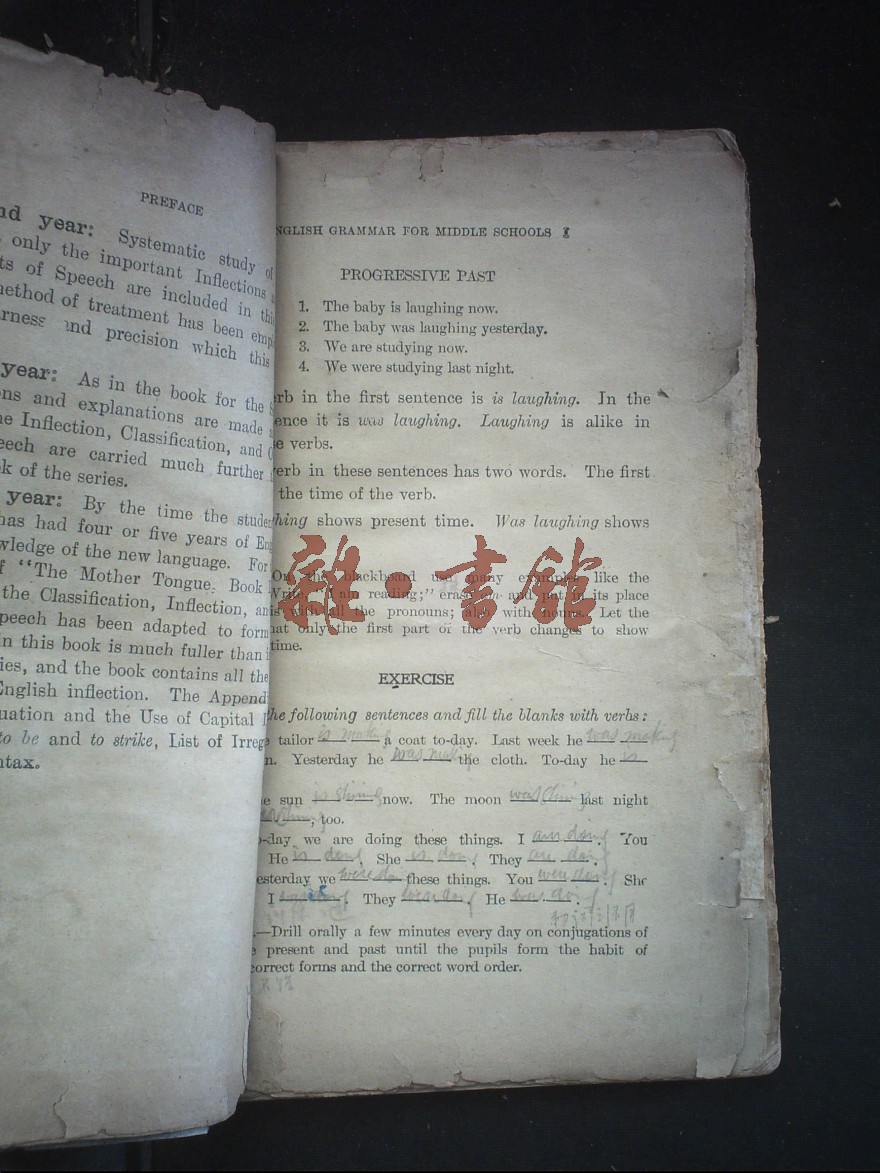 PREFACE
nd year: Systematic study of
only the important Inflections
ts of Speech are included in this
ethod of treatment has been
rness and precision which this
year: As in the book for the
ns and explanations are made
e Inflection, Classification, and
eech are carried much further
k of the series.
year: By the time the
has had four or five years of
wledge of the new language. For
f "The Mother Tongue. Book
the Classification, Inflection, an
peech has been adapted to form
n this book is much fuller than
ies, and the book contains all the
English inflection. The Append
uation and the Use of Capital
to be and to strike, List of Irreg
tax.
NGLISH GRAMMAR FOR MIDDLE SCHOOLS
PROGRESSIVE PAST
1. The baby is laughing now.
2. The baby was laughing yesterday.
3. We are studying now.
4. We were studying last night.
rb in the first sentence is is laughing. In the
ence it is was laughing. Laughing is alike in
e verbs.
erb in these sentences has two words. The first
the time of the verb.
hing shows present time. Was laughing shows
On the blackboard use many examples like the
Write, "I am reading;" erase am and put in its place
is with all the pronouns; also with nouns. Let the
hat only the first part of the verb changes to show
time.
雜·書館
EXERCISE
he following sentences and fill the blanks with verbs:
tailor is making a coat to-day. Last week he was making
n. Yesterday he was making the cloth. To-day he is
e sun is shining now. The moon was shining last night
, too.
o-day we are doing these things. I am doing. You
He is doing. She is doing. They are doing.
esterday we were doing these things. You were doing. She
I . They were doing. He was doing.
.—Drill orally a few minutes every day on conjugations of
e present and past until the pupils form the habit of
correct forms and the correct word order.